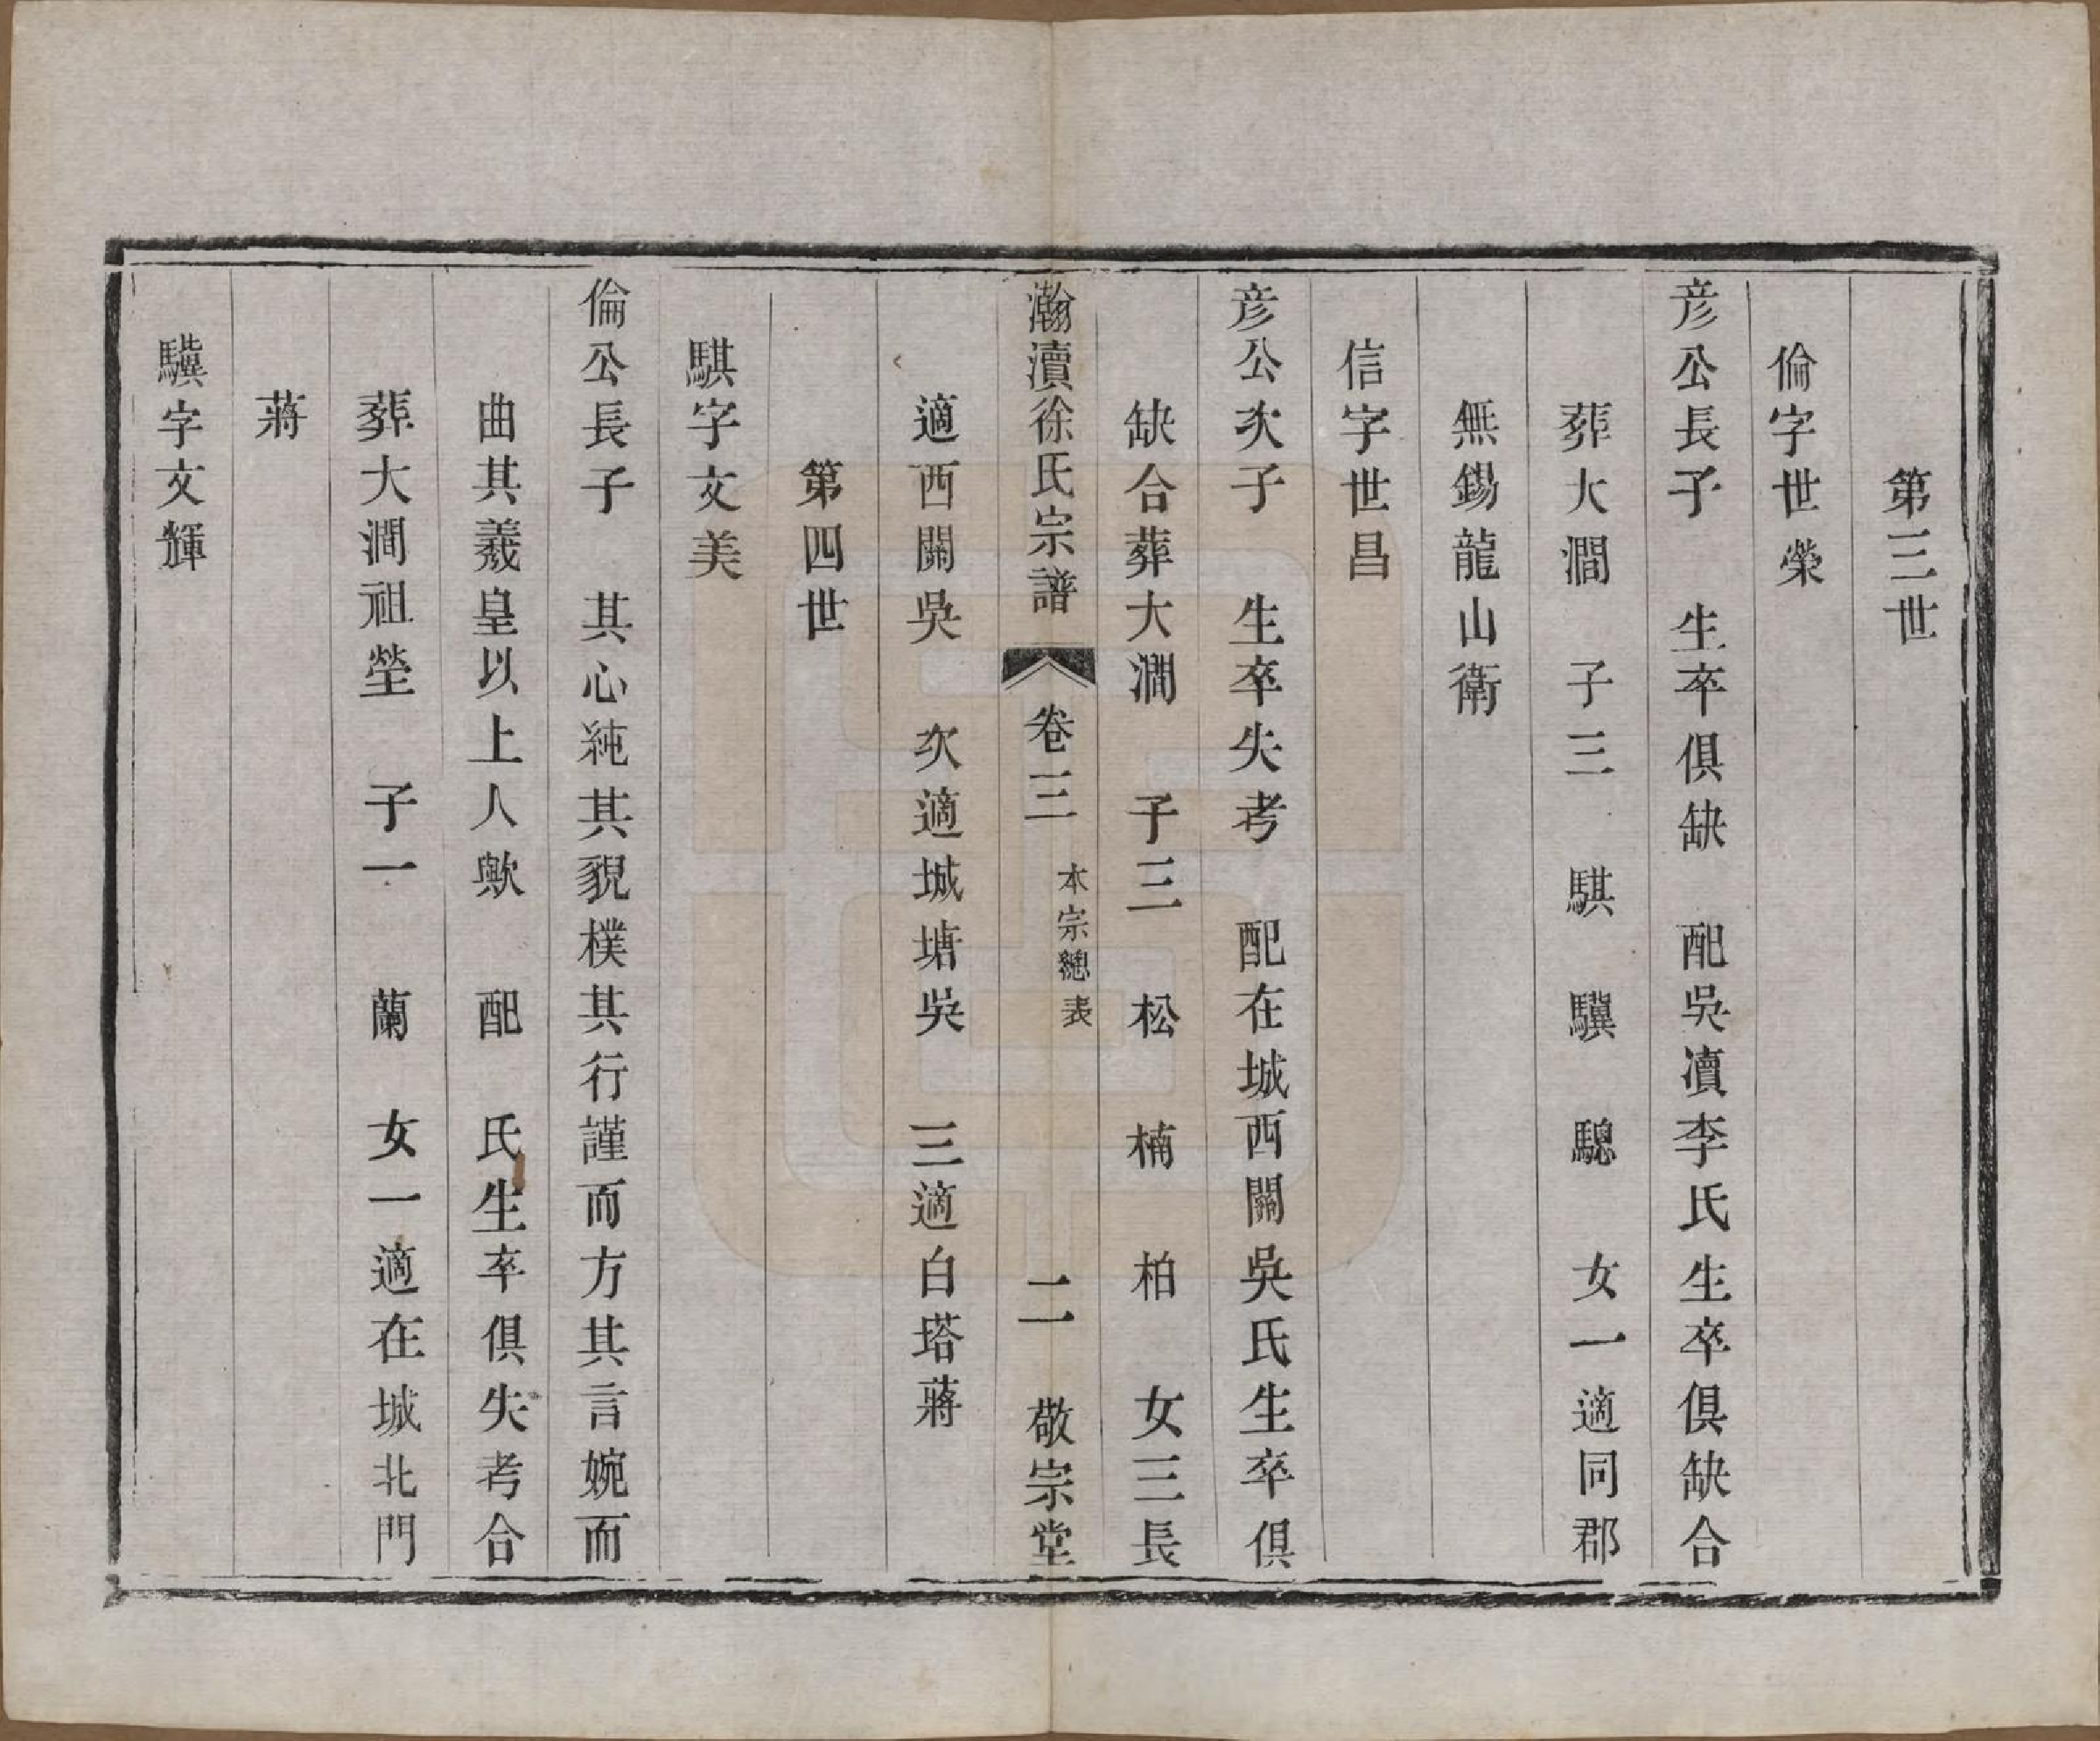 第三世
倫字世榮
彦公長子　生卒俱缺　配吳瀆李氏生卒俱缺合
葬大澗　子三　騏　驥　驄　女一適同郡
無錫龍山衛
信字世昌
彦公次子　生卒失考　配在城西關吳氏生卒俱
缺合葬大澗　子三　松　楠　柏　女三長
瀚瀆徐氏宗譜　卷三　本宗總表　二　敬宗堂
適西關吳　次適城塘吳　三適白塔蔣
第四世
騏字文美
倫公長子　其心純其貌樸其行謹而方其言婉而
曲其羲皇以上人歟　配　氏生卒俱失考合
葬大澗祖塋　子一　蘭　女一適在城北門
蔣
驥字文輝